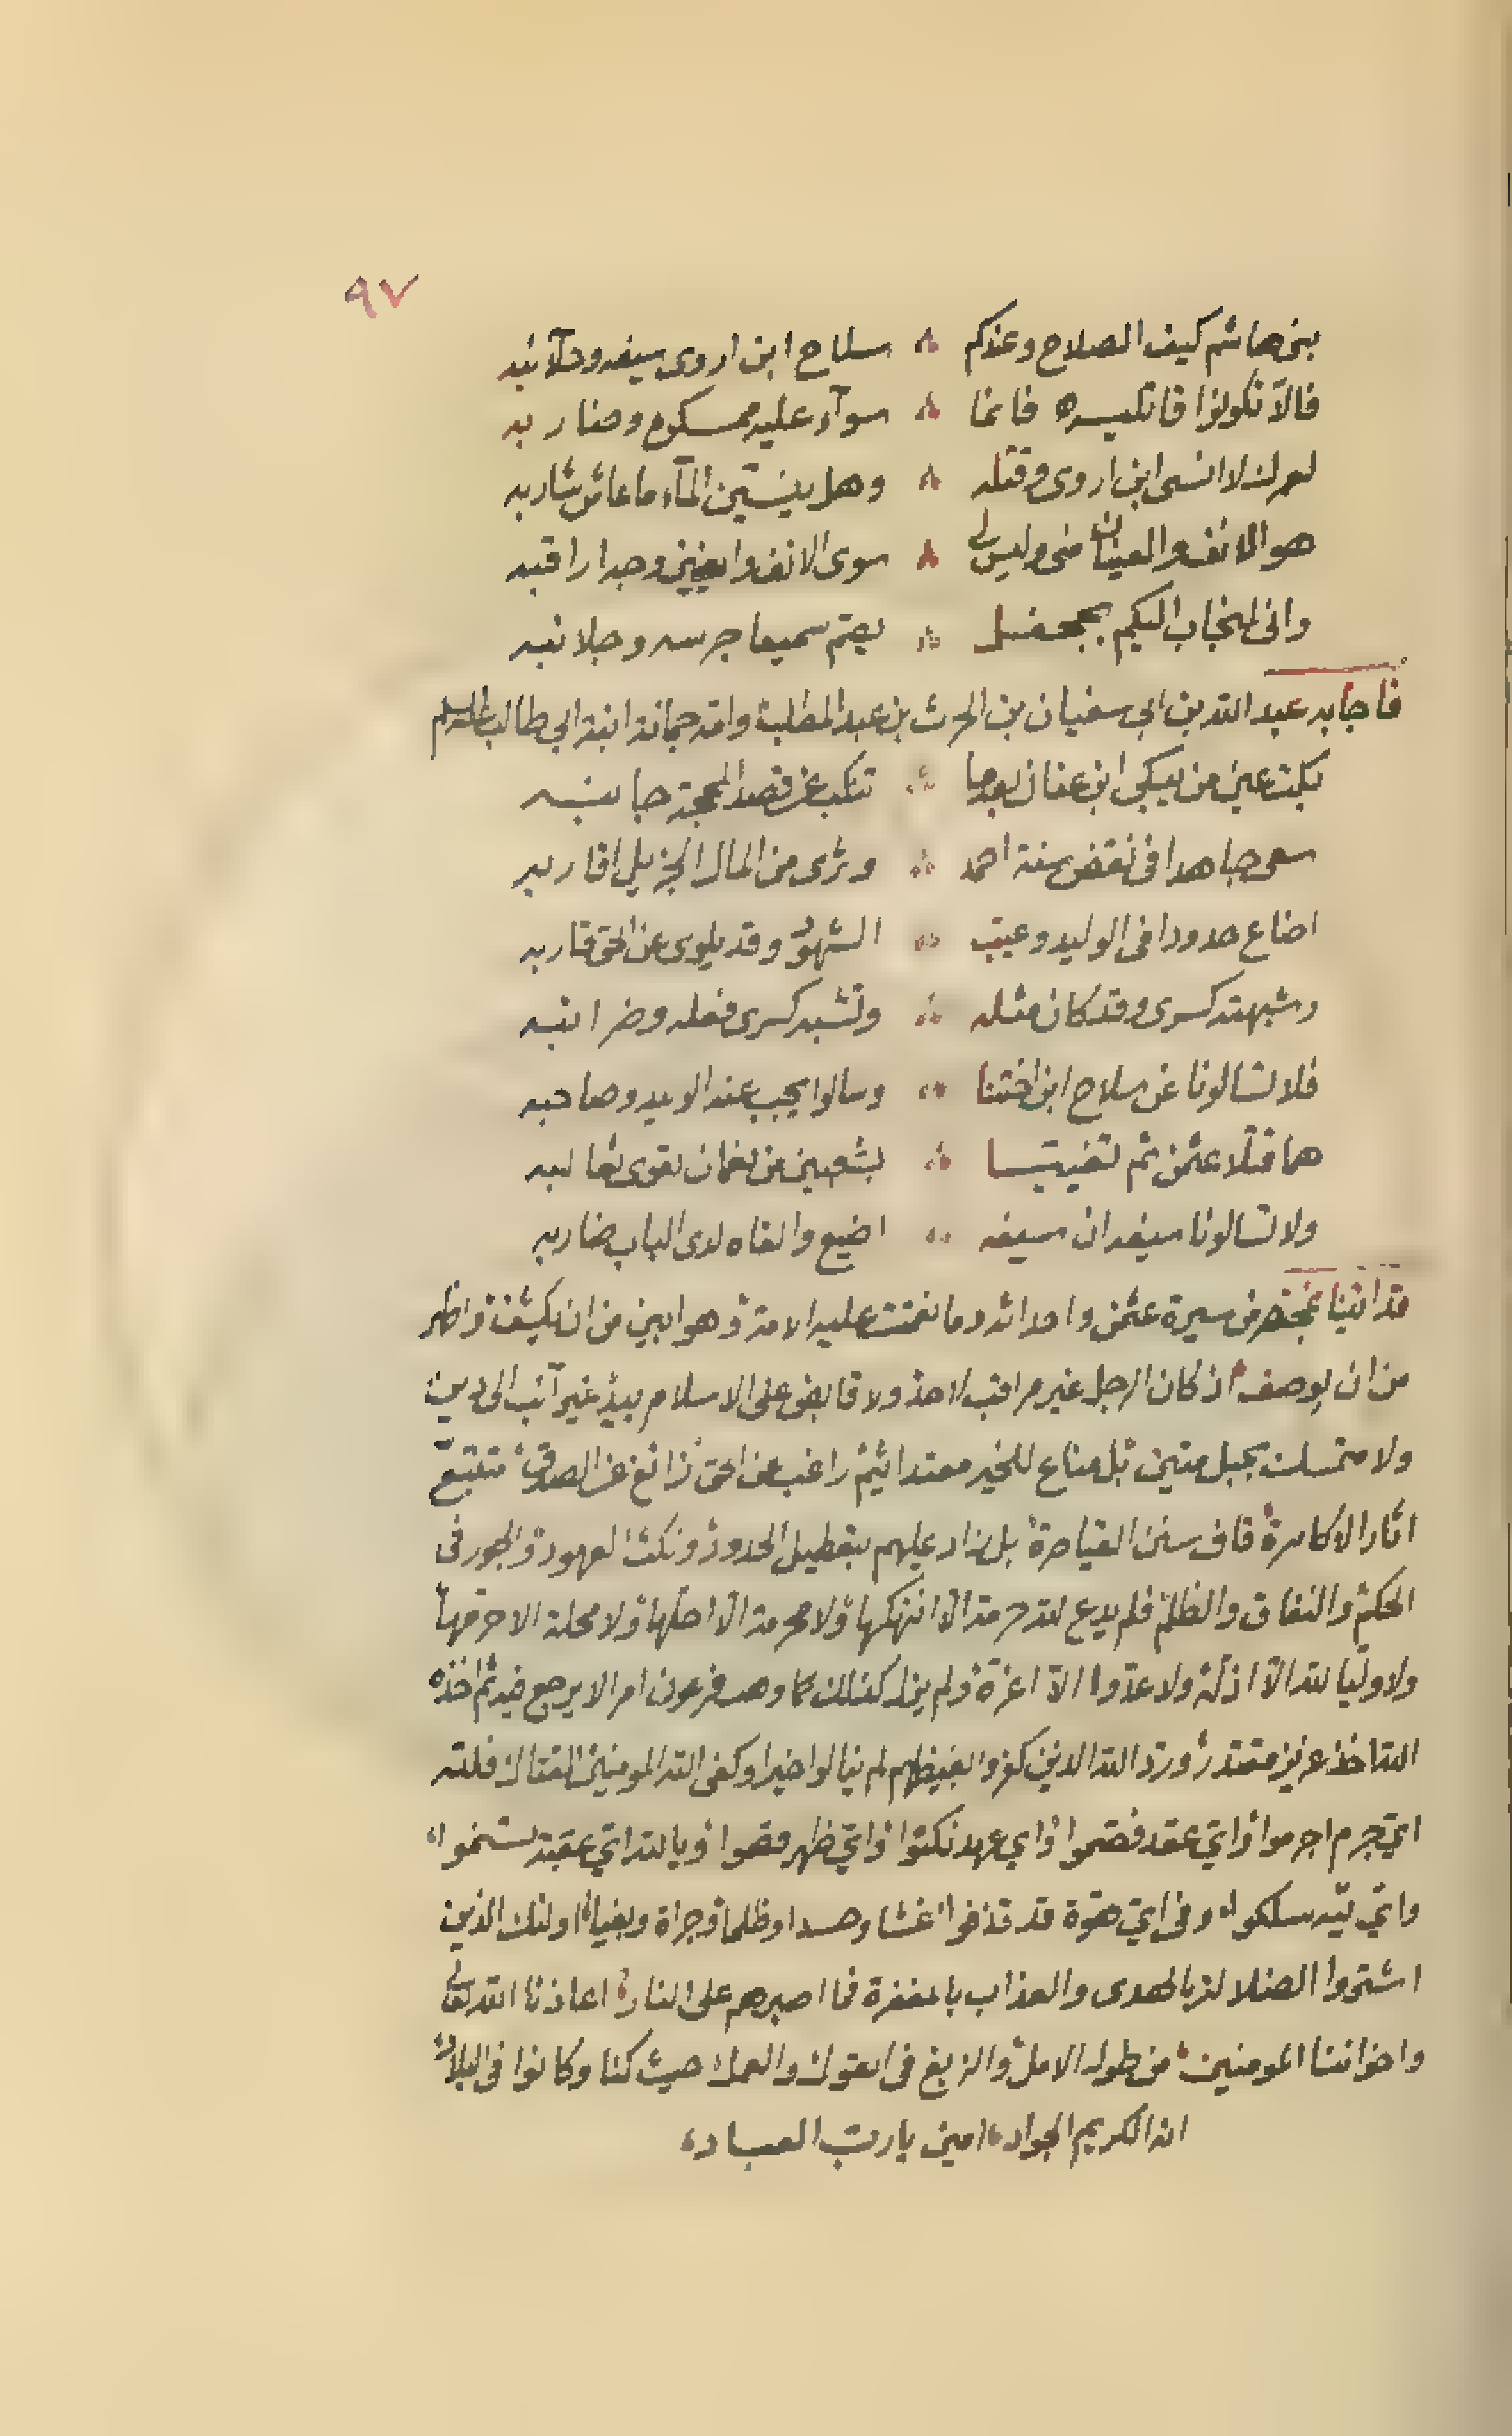 ٩٧
بني هاشم كيف الصلاح وعندكم ؞ سلاح ابن اروى سيفه وحلائبه
فالّا تكونوا قاتليه فانما ؞ سوآء عليه ممسكوه وضاربه
لعمرك لا انسى ابن اروى وقتله ؞ وهل ينسيّن المآء ما عاش شاربه
هو الانف والعينان منى وليس لى ؞ سوى الانف والعينين وجدا راقبه
وانى لمجتاب اليكم بجحفل ؞ يصم سميعا جرسه وجلائبه
فاجابه عبد الله بن ابي سفيان بن الحرث بن عبد المطلب وامه جمانة ابنة ابي طالب عليه السلم
بكت عين من يبكي ابن عفان بعدما ؞ تنكب عن قصد المحجة جانبه
سعى جاهدا فى نقض سنة احمد ؞ وثرى من المال الجزيل اقاربه
اضاع حدودا فى الوليد وعيب ؞ الشهوُد وقد يلوى عن الحق قاربه
وشبهته كسرى وقد كان مثله ؞ وتشبه كسرى فعله وضرائبه
فلا تسالونا عن سلاح ابن اختنا ؞ وسالوا يجب عنه الوليد وصاحبه
هما قتلا عثمن ثم تغيبا ؞ بشعبين من نعمان تقوى ثعالبه
ولا تسالونا سيفه ان سيفه ؞ اضيع والقاه لدى الباب ضاربه
قد اتينا بمختصر من سيرة عثمن واحداثه وما نقمت عليه الامة وهو ابين من ان يكشف واظهر
من ان يوصف اذ كان الرجل غير مراقب لاحد ولا قابض على الاسلام بيد غير آئب الى دين
ولا متمسك بحبل متين بل مناع للخير معتد اثيم راغب عن الحق زائغ عن الصدق متتبع
اثار الاكاسرة قاف سنن القياصرة بل زاد عليهم بتعطيل الحدود ونكث العهود والجور فى
الحكم والنفاق والظلم فلم يدع لله حرمة الّا انتهكها ولا محرمة الّا احلها ولا محلة الا حرمها
ولا وليّا لله الّا اذلّه ولا عدّوا الّا اعزّه ولم يزل كذلك كما وهب فرعون امر الا يرجع فيه ثم اخذه
الله اخذ عزيز مقتدر ورد الله الذين كفروا بغيظهم لم ينالوا خيرا وكفى الله المومنين القتال فلله
ايّ جرم اجرموا وايّ عقد فصموا واي عهد نكثوا وايّ ظهر قصموا ويا لله ايّ عقبة تسنموا
وايّ تيه سلكوا وفى ايّ هوّة قد قذفوا غشا وحسدا وظلما وجراة وبغيا اولئك الذين
اشتروا الضلالة بالهدى والعذاب بالمغفرة فما اصبرهم على النار اعاذنا الله تعالى
واخواننا المومنين من طول الامل والزيغ فى القول والعمل حيث كنا وكانوا فى البلاد
انه الكريم الجواد امين يا رب العباد